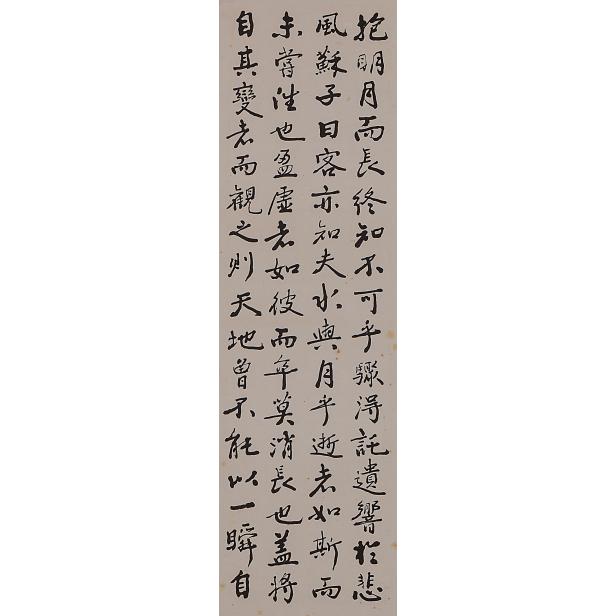 抱明月而長終知不可乎驟得託遺響於悲
風蘇子曰客亦知夫水與月乎逝者如斯而
未嘗往也盈虛者如彼而卒莫消長也蓋將
自其變者而觀之則天地曾不能以一瞬自